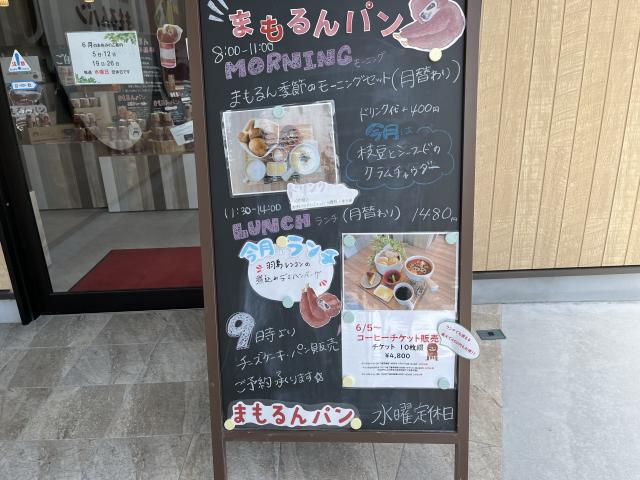 6月のお休みのご案内
5日・12日
19日・26日
毎週 水曜日 定休日です
まもるんパン
8:00-11:00
MORNING モーニング
まもるん季節のモーニングセット(月替わり)
ドリンク代+400円
今月は
枝豆とシーフードの
クラムチャウダー
ドリンク
11:30-14:00
LUNCH ランチ (月替わり) 1480円
今月ランチ
羽島レンコンの
煮込みデミハンバーグ
9時より
チーズケーキ・パン販売
ご予約承ります
6/5〜
コーヒーチケット販売
チケット 10枚綴
¥4,800
まもるんパン
水曜定休日